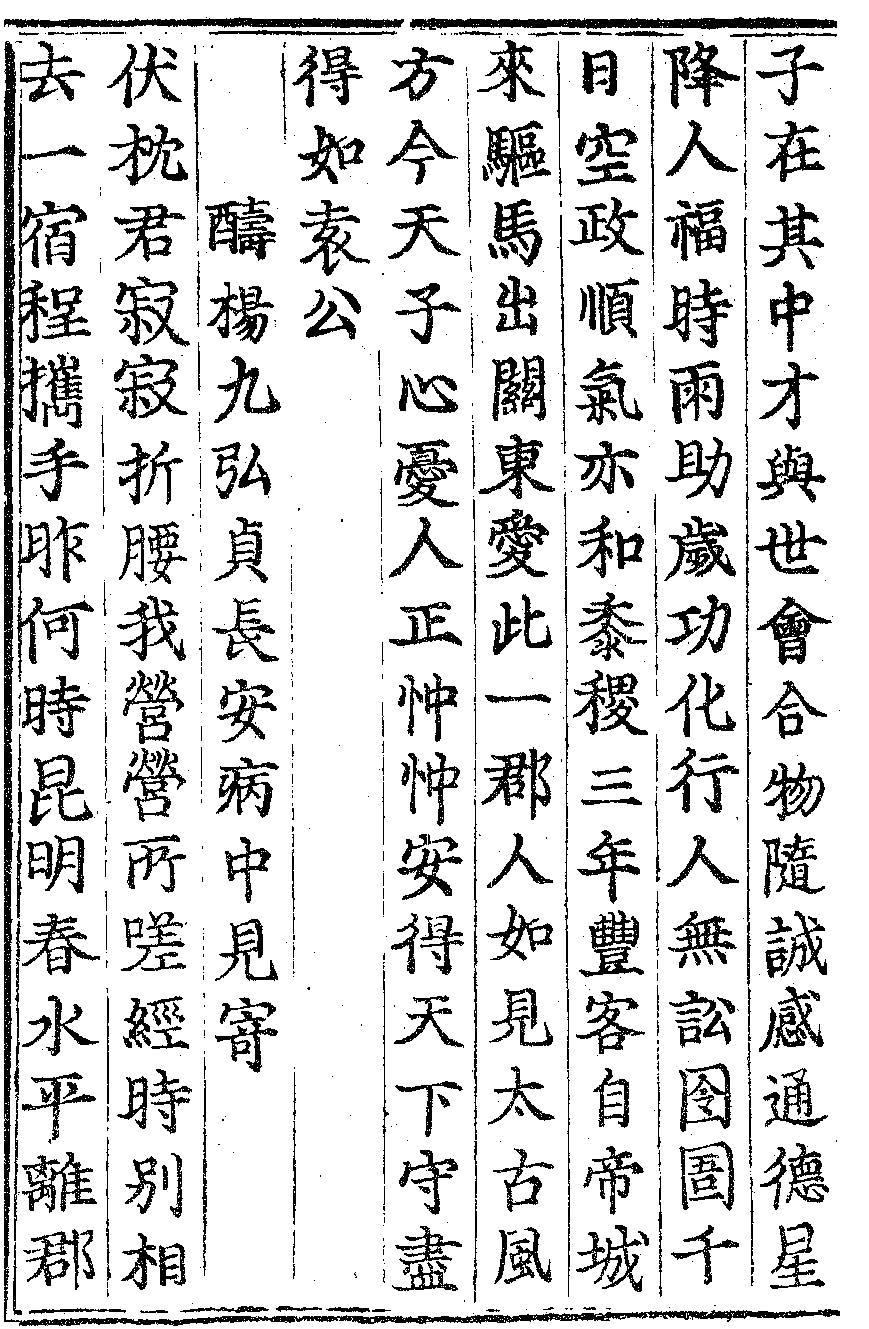 子在其中才與世會合物隨誠感通德星
降人福時雨助歲功化行人無訟囹圄千
日空政順氣亦和黍稷三年豐客自帝城
來驅馬出關東愛此一郡人如見太古風
方今天子心憂人正忡忡安得天下守盡
得如袁公
醻楊九弘貞長安病中見寄
伏枕君寂寂折腰我營營所嗟經時別相
去一宿程攜手昨何時昆明春水平離郡